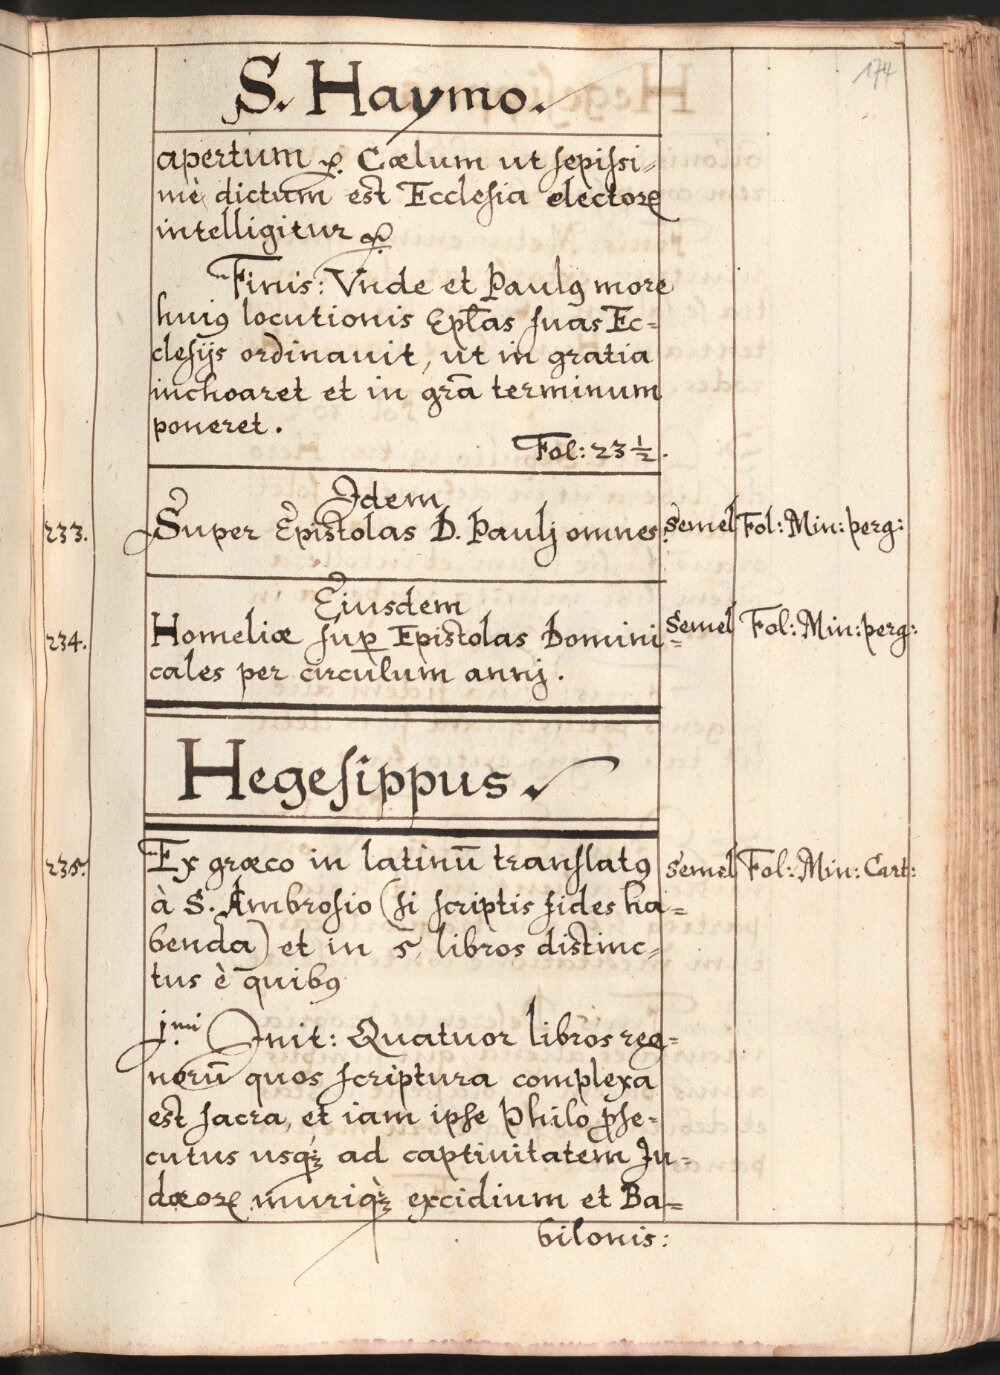 174
S. Haymo.
apertum ꝛc. Cœlum ut sepissi-
mè dictum est Ecclesia electorꝝ
intelligitur ꝛc
Finis: Vnde et Paulꝰ more
huiꝰ locutionis Ep̄las suas Ec-
clesijs ordinauit, ut in gratia
inchoaret et in gr̄a terminum
poneret.
Fol: 23 ½.
Idem
233. Super Epistolas D. Paulj omnes. Semel Fol: Min: perg:
Eiusdem
234. Homeliæ suꝑ Epistolas Domini= Semel Fol: Min: perg:
cales per circulum annj.
Hegesippus.
235. Ex græco in latinū translatꝰ Semel Fol: Min: Cart:
à S. Ambrosio (si scriptis fides ha=
benda) et in 5 libros distinc-
tus è quibꝰ
j.mi Init: Quatuor libros reg=
norū quos scriptura complexa
est sacra, et iam ipse Philo ꝓse-
cutus usqꝫ ad captiuitatem Ju=
dæorꝝ muriqꝫ excidium et Ba=
bilonis: